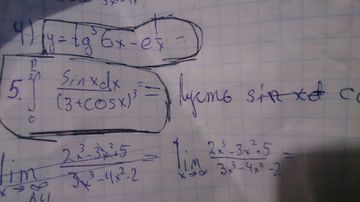 4) y = tg³6x - e^(1/x) =
5. ∫₀^(π/2) sin x dx / (3 + cos x)³ = Пусть
lim x→∞ (2x³ - 3x² + 5) / (3x³ - 4x² - 2) lim x→∞ (2x³ - 3x² + 5) / (3x³ - 4x² - 2) =